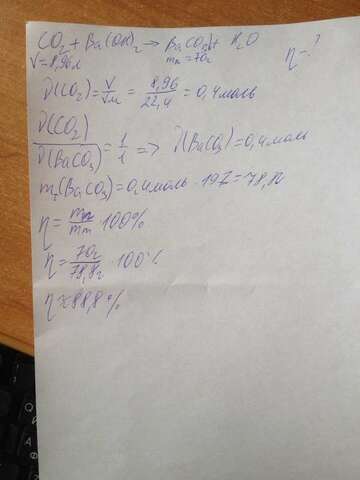 CO₂ + Ba(OH)₂ → BaCO₃↓ + H₂O
V=8,96л mп=70г η-?
ν(CO₂) = V/Vм = 8,96/22,4 = 0,4моль
ν(CO₂)/ν(BaCO₃) = 1/1 => ν(BaCO₃) = 0,4моль
mт(BaCO₃) = 0,4моль · 197 = 78,8г
η = mп/mт · 100%
η = 70г/78,8г · 100%
η ≈ 88,8%